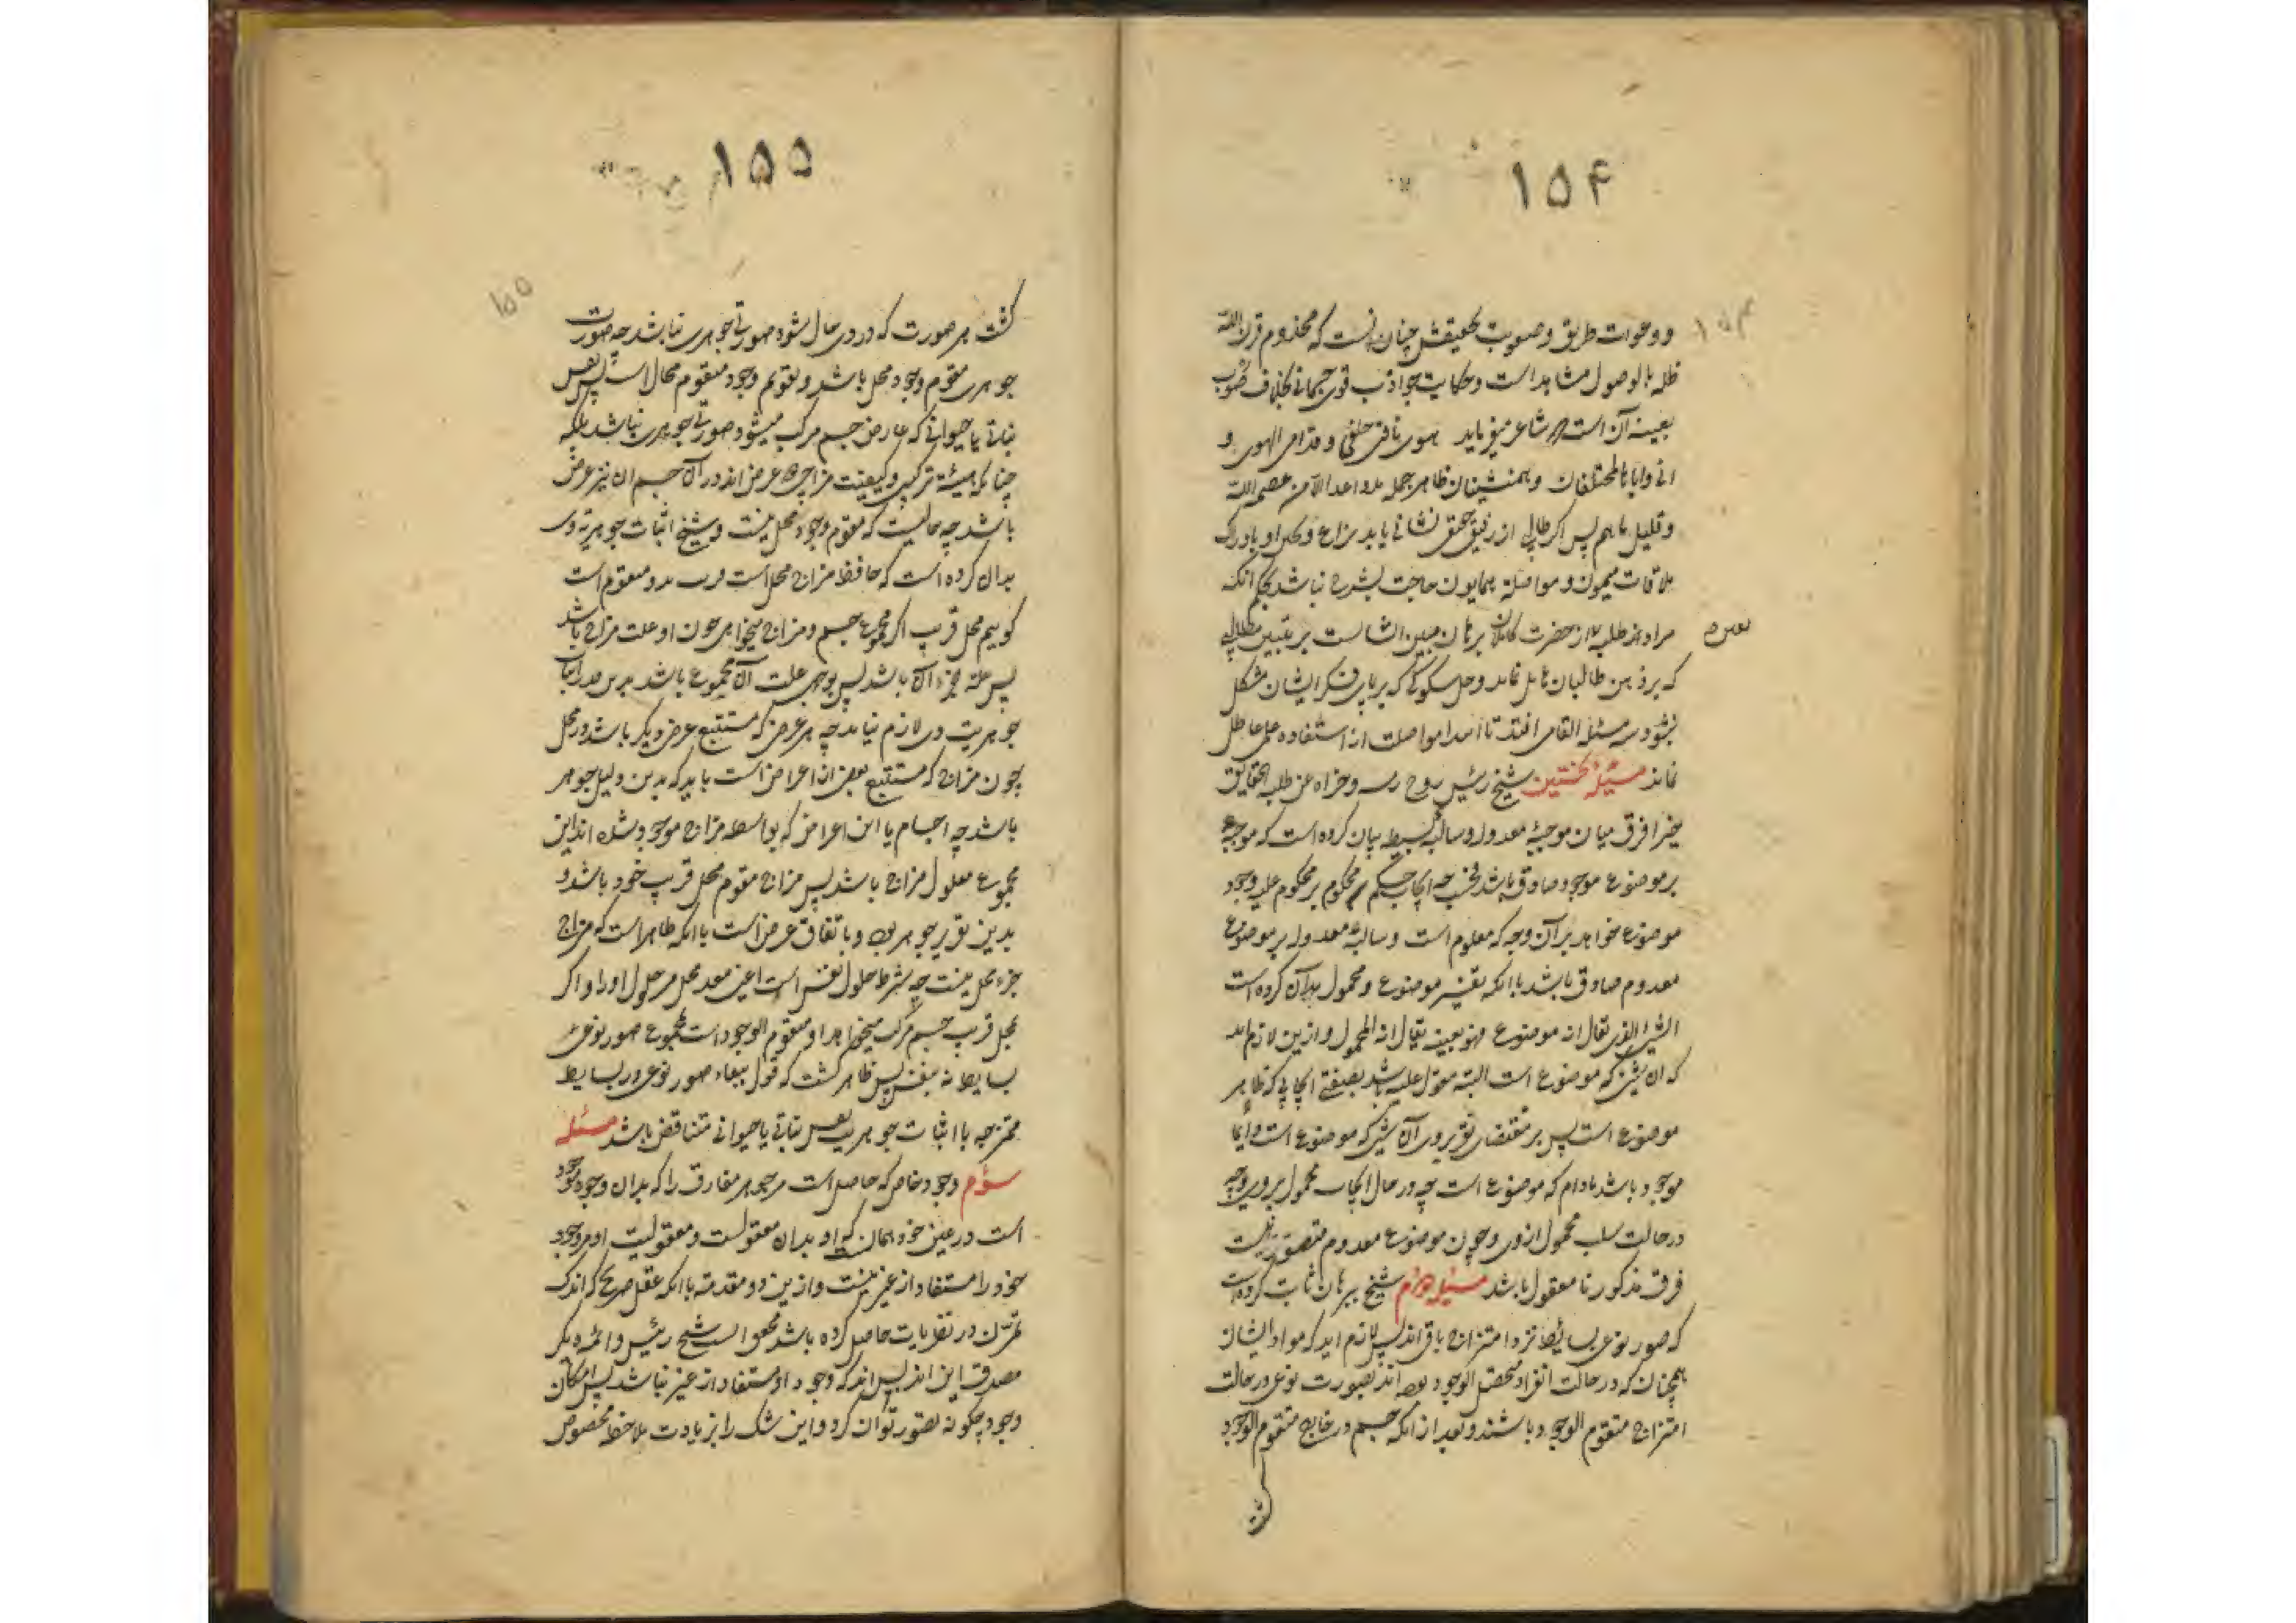 ۱۵۴
۱۵۴
و وعوات طریق و صعوبت تحقیقش چنان است که مخدوم
ظله بالوصول مشاهد است و حکایت جواذب قوی جسمانی بخلاف صوب
بعینه آن است شاعر میفرماید هوی ناقتی خلفی و قدامی الهوی و
انی وایاها لمختلفان و همنشینان ظاهر جمله الا من عصم الله
و قلیل ماهم پس اگر طالبی از رفیق نشانی یابد نزاع و کمال او بادراک
ملاقات میمون و مواصله همایون حاجت بشرح نباشد بحکم آنکه
مراد از طلبه از حضرت کاملان برهان مبین است بر تبیین مطالبی
که بر ذهن طالبان نماند و حل شکوکی که بر پای فکر ایشان مشکل
بشود سه مسئله القا می افتد تا مواصلت از استفاده علمی عاطل
نماند مسئله نخستین شیخ رئیس روح رمسه و جزاه عن طلبه الحقایق
خیرا فرق میان موجبه معدوله و سالبه بسیط بیان کرده است که موجبه
بر موضوع موجود صادق باشد فحسب چه ایجاب حکم محکوم بر محکوم علیه وجود
موضوع خواهد بر آن وجه که معلوم است و سالبه معدوله بر موضوع
معدوم صادق باشد با آنکه تفسیر موضوع و محمول بدان کرده است
الشئ الذی یقال انه موضوع فهو بعینه یقال انه المحمول و ازین لازم اید
که آن شئ که موضوع است البته مقول علیه باشد بصفتی ایجابی که ظاهر
موضوع است پس بر مقتضای تقریر وی آن شئ که موضوع است دایما
موجود باشد مادام که موضوع است چه در حال ایجاب محمول بر وی و چه
در حالت سلب محمول از وی و چون موضوع معدوم متصور نیست
فرق مذکور نا معقول باشد مسئله دوم شیخ ببرهان ثابت کرده است
که صور نوعی بسائط نزد امتزاج باقی اند پس لازم اید که مواد ایشان
همچنان که در حالت انفراد متحصل الوجود بوده اند بصورت نوعی در حالت
امتزاج متقوم الوجود باشند و بعد از آنکه جسم در خارج متقوم الوجود
۱۵۵
۱۵۵
گشت هر صورت که در وی حال شود صورتی جوهری نباشد چه صورت
جوهری مقوم وجود محل باشد و تقویم وجود متقوم محال است پس نفس
نباتی یا حیوانی که عارض جسم مرکب میشود صورتی جوهری نباشد بلکه
چنانکه هیئة ترکیبی و کیفیت مزاجی عرض اند در آن جسم ان نیز عرض
باشد چه حالیست که مقوم وجود محل نیست و شیخ اثبات جوهریة وی
بدان کرده است که حافظ مزاج محل است و بدو متقوم است
گوییم محل قریب اگر مجموع جسم و مزاج میخواهد چون او علت مزاج باشد
پس علة جزء آن باشد پس بوجهی علت آن مجموع باشد بدین قدر ایجاب
جوهریت وی لازم نیاید چه هر عرض که مستتبع عرض دیگر باشد در محل
چون مزاج که مستتبع بعضی از اعراض است باید که بدین دلیل جوهر
باشد چه اجسام با این اعراض که بواسطه مزاج موجود شده اند این
مجموع معلول مزاج باشد پس مزاج مقوم محل قریب خود باشد و
بدین تقریر جوهر بود و باتفاق عرض است با آنکه ظاهر است که مزاج
جزء محل نیست چه شرط حلول نفس است اعنی معد محل مر حلول او را و اگر
بمحل قریب جسم مرکب میخواهد او متقوم الوجود است بمجموع صور نوعی
بسایط نه بنفس پس ظاهر گشت که قول ببقاء صور نوعی در بسایط
ممتزجه با اثبات جوهریت نفس نباتی یا حیوانی متناقض باشد مسئله
سؤم وجود خاص که حاصل است مر جوهر مفارق را که بدان وجود موجود
است در عین خود همانست که او بدان معقولست و معقولیت او مر وجود
خود را مستفاد از غیر نیست و ازین دو مقدمه با آنکه عقل صریح که اندک
تمرن در نظریات حاصل کرده باشد محقق است شیخ رئیس و ائمه دیگر
مصدق این اند پس که وجود او مستفاد از غیر نباشد پس امکان
وجود چگونه تصور توان کرد و این شک را بزیادت ملاحظه مخصوص